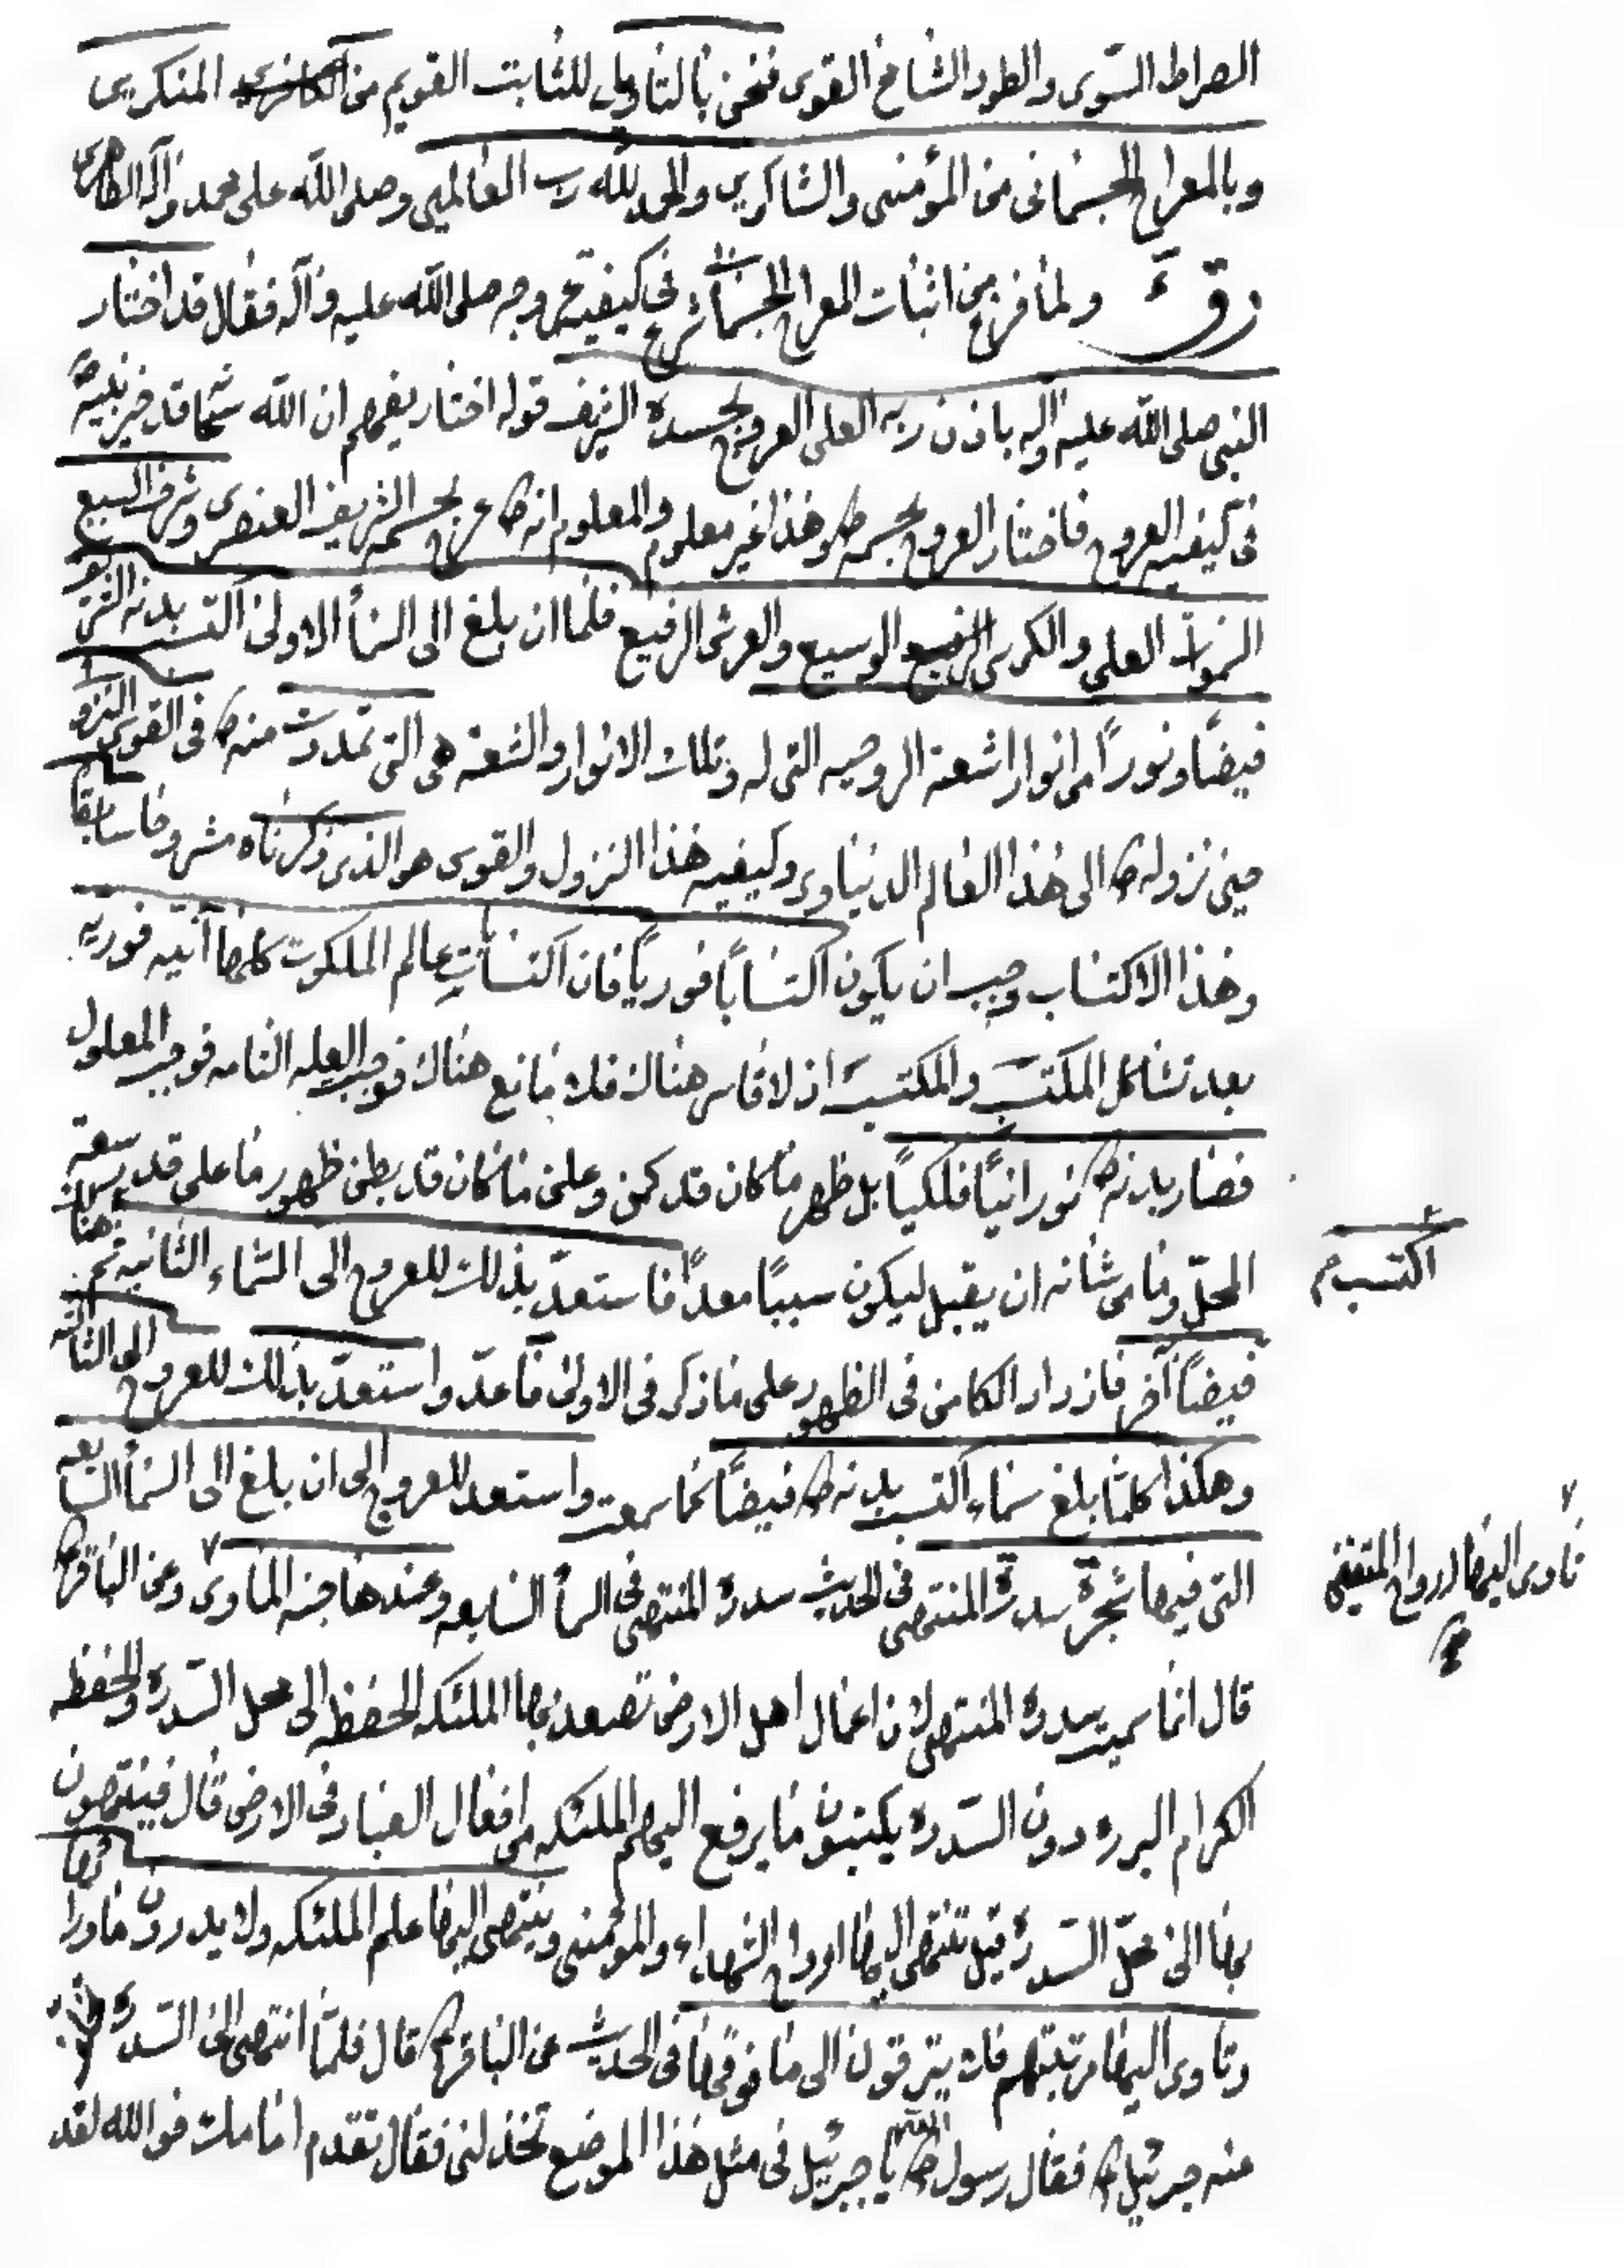 الصراط السّوى والطود الشامخ القوى فنحن بالتاويل للثابت القويم من المنكرين
وبالمعراج الجسمانى من المؤمنين والشاكرين والحمد لله رب العالمين وصلى الله على محمد وآله الطاهرين
ولما فرغ من اثبات المعراج الجسمانى شرع فى كيفية عروجه صلى الله عليه وآله فقال قد اختار
النبى صلى الله عليه وآله باذن ربه العلى العروج بجسده الشريف قوله اختار يفهم ان الله تعالى قد خير نبيه ص
فى كيفيه العروج فاختار العروج بجسمه ص وهذا غير معلوم والمعلوم انه ص عرج بجسمه الشريف العنصرى وشرف السبع
السموات العلى والكرسى الوسيع والعرش الرفيع فلما ان بلغ الى السمأ الاولى اكتسب بدنه الشريف
فيضًا ونورًا من انوار اشعة الروحيه التى له وتلك الانوار والشعه هى التى تمددت منه ص فى القوى النزو
حين نزوله ص الى هذا العالم الدنياوى وكيفيه هذا النزول والقوى هو الذى ذكرناه مشروحا سابقا
وهذا الاكتساب وجب ان يكون اكتسابًا فوريًا فان اكتسابات عالم الملكوت كلها آنيه فوريه
بعد تشاكل المكتسِب والمكتسَب اذ لا قاسر هناك فلا مانع هناك فوجب العله التامه فوجب المعلول
فصار بدنه ص نورانيًا فلكيًا بل ظهر ما كان قد كمن وعلن ما كان قد بطن ظهور ما على قدر سعة
المحلّ وما من شانه ان يقبل ليكون سببًا معدًا فاستعدّ بذلك للعروج الى السماء الثانيه ثم هناك
اكتسب م
فيضًا آخر فازداد الكامن فى الظهور على ما ذكر فى الاولى فأعدّ واستعدّ بذلك للعروج الى الثالثه
وهكذا كلما بلغ سماء اكتسب بدنه ص فيضًا كما سمعت واستعد للعروج الى ان بلغ الى السمأ السابعه
التى فيها شجرة سدرة المنتهى فى الحديث سدرة المنتهى فى السمأ السابعه وعندها جنه المأوى وعن الباقر ع
تاوى اليها ارواح المتقين
قال انما سميت سدرة المنتهى لان اعمال اهل الارض تصعد بها الملئكه الحفظه الى محل السّدرة والحفظه
الكرام البرره دون السّدره يكتبون ما يرفع اليهم الملئكه من افعال العباد فى الارض قال فينتهون
بها الى محلّ السّدرة قيل تنتهى اليها ارواح الشهداء والمؤمنين وينتهى اليها علم الملئكه ولا يدرون ما وراءها
وتاوى اليها مرتبتهم فلا يترقون الى ما فوقها فى الحديث عن الباقر ع قال فلمّا انتهى الى السّدرة
عنه جبرئيل ع فقال رسول الله ص يا جبرئيل فى مثل هذا الموضع تخذلنى فقال تقدم امامك فوالله لقد